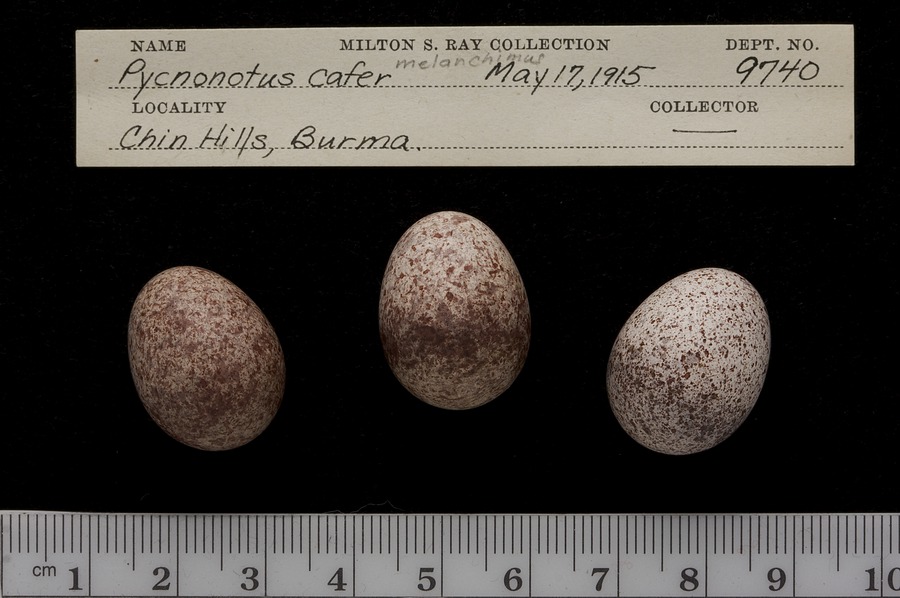 NAME MILTON S. RAY COLLECTION DEPT. NO.
Pycnonotus cafer melanchimus May 17, 1915 9740
LOCALITY COLLECTOR
Chin Hills, Burma.
cm 1 2 3 4 5 6 7 8 9 10